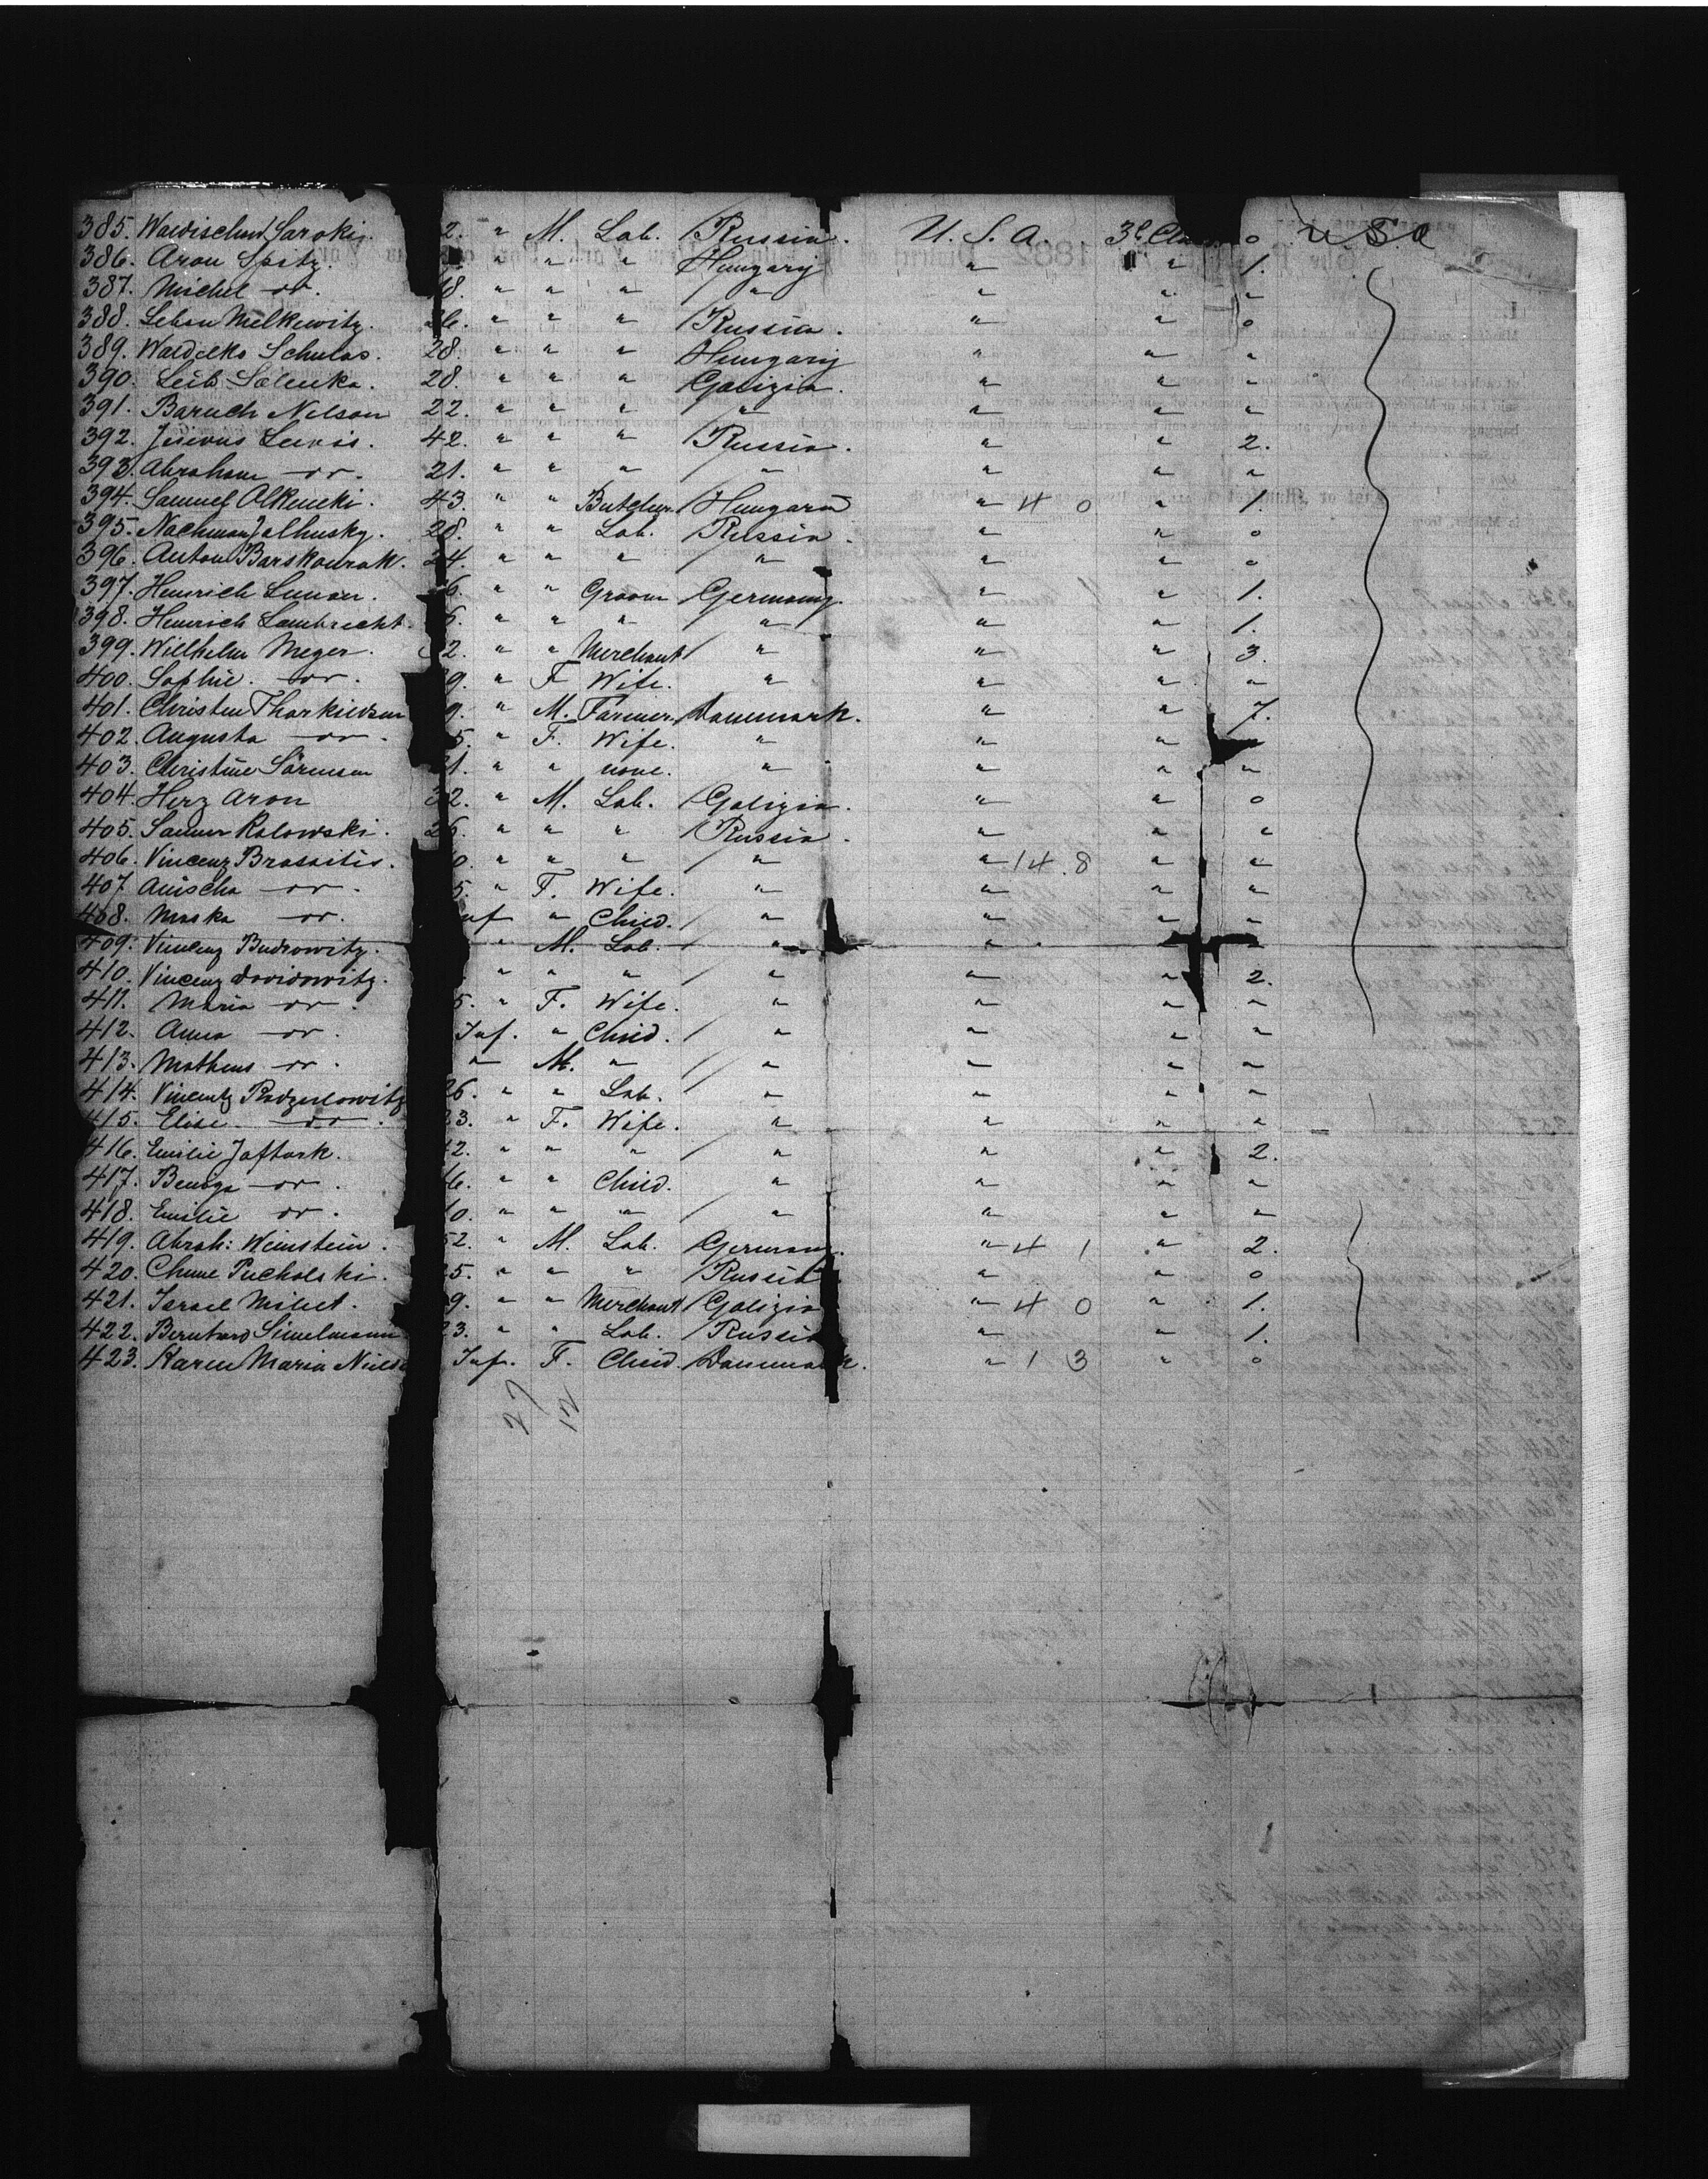 385. Wardischuv Saroki. 2. " M. Lab. Russia. U. S. A. 3d Cla o U S A
386. Aron Spitz. " " " Hungary " " 1.
387. Michel do. 18. " " " " " " "
388. Leban Melkewitz. 26. " " " Russia. " " o
389. Waldeko Schulas. 28. " " " Hungary " " "
390. Leib Salenka. 28. " " " Galizia. " " "
391. Baruch Nelson 22. " " " " " " "
392. Lewis. 42. " " " Russia. " " 2.
393. Abraham do. 21. " " " " " " "
394. Samuel Olkenicki. 43. " " Butcher Hungaria " 4 0 " 1.
395. Nachman Jalhusky. 28. " " Lab. Russia. " " o
396. Anton Barskourak. 24. " " " " " " o
397. Heinrich Lunau. 6. " " Groom Germany. " " 1.
398. Heinrich Lambrecht. 6. " " " " " " 1.
399. Wilhelm Meyer. 32. " " Merchant " " " 3.
400. Sophie. do. 9. " F Wife. " " " "
401. Christen Thorkildsen 9. " M. Farmer Danmark. " " 7.
402. Augusta do. 5. " F. Wife. " " "
403. Christine Sörensen 21. " " none. " " " "
404. Herz Aron 32. " M. Lab. Galizia. " " o
405. Sanner Kalowski. 26. " " " Russia. " " "
406. Vincenz Brasaitis. 0. " " " " " 14.8 " "
407 Anischa do. 5. " F. Wife. " " " "
408. Maska do. nf " " Child. " " " "
409. Vincenz Budrowitz. " M. Lab. " " " "
410. Vincenz Davidowitz. " " " " " " 2.
411. Maria do. 5. " F. Wife. " " " "
412. Anna do. Inf. " Child. " " " "
413. Matheus do. " M. " " " " "
414. Vincentz 26. " " Lab. " " " "
415. Elise. do. 23. " F. Wife. " " " "
416. Emilie Jaftork. 42. " " " " " " 2.
417. Beniga do. 16. " " Child. " " " "
418. Emilie do. 10. " " " " " " "
419. Abrah: Weinstein. 52. " M. Lab. Germany. " 4 1 " 2.
420. Chune Pucholski. 25. " " " Russia " " o
421. Israel Milict. 9. " " Merchant Galizia " 4 0 " 1.
422. Bernhard Simelmann 23. " " Lab. Russia " " 1.
423. Karen Maria Niels Inf. F. Child. Danmark. " 1 3 " o
27 12